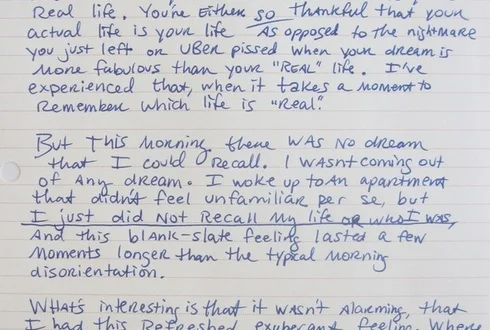 Real life. You're Either so thankful that your
actual life is your life As opposed to the nightmare
you just left or UBER pissed when your dream is
more fabulous than your "REAL" life. I've
experienced that, when it takes a moment to
Remember which life is "Real."
But This Morning, there WAS No dream
that I could Recall. I WASNt coming out
of Any dream. I woke up to An apartment
that didn't feel unfamiliar per se, but
I just did Not Recall My life or who I was,
And this blank-slate feeling lasted a few
Moments longer than the typical Morning
disorientation.
WHAt's interesting is that it WASN't Alarming, that
I had this Refreshed, exuberant feeling. Where